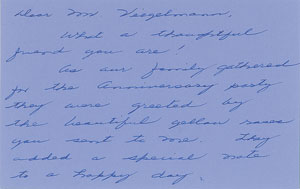 Dear Mr. Veegelmann,
What a thoughtful
friend you are!
As our family gathered
for the Anniversary party
they were greeted by
the beautiful yellow roses
you sent to me. They
added a special note
to a happy day.